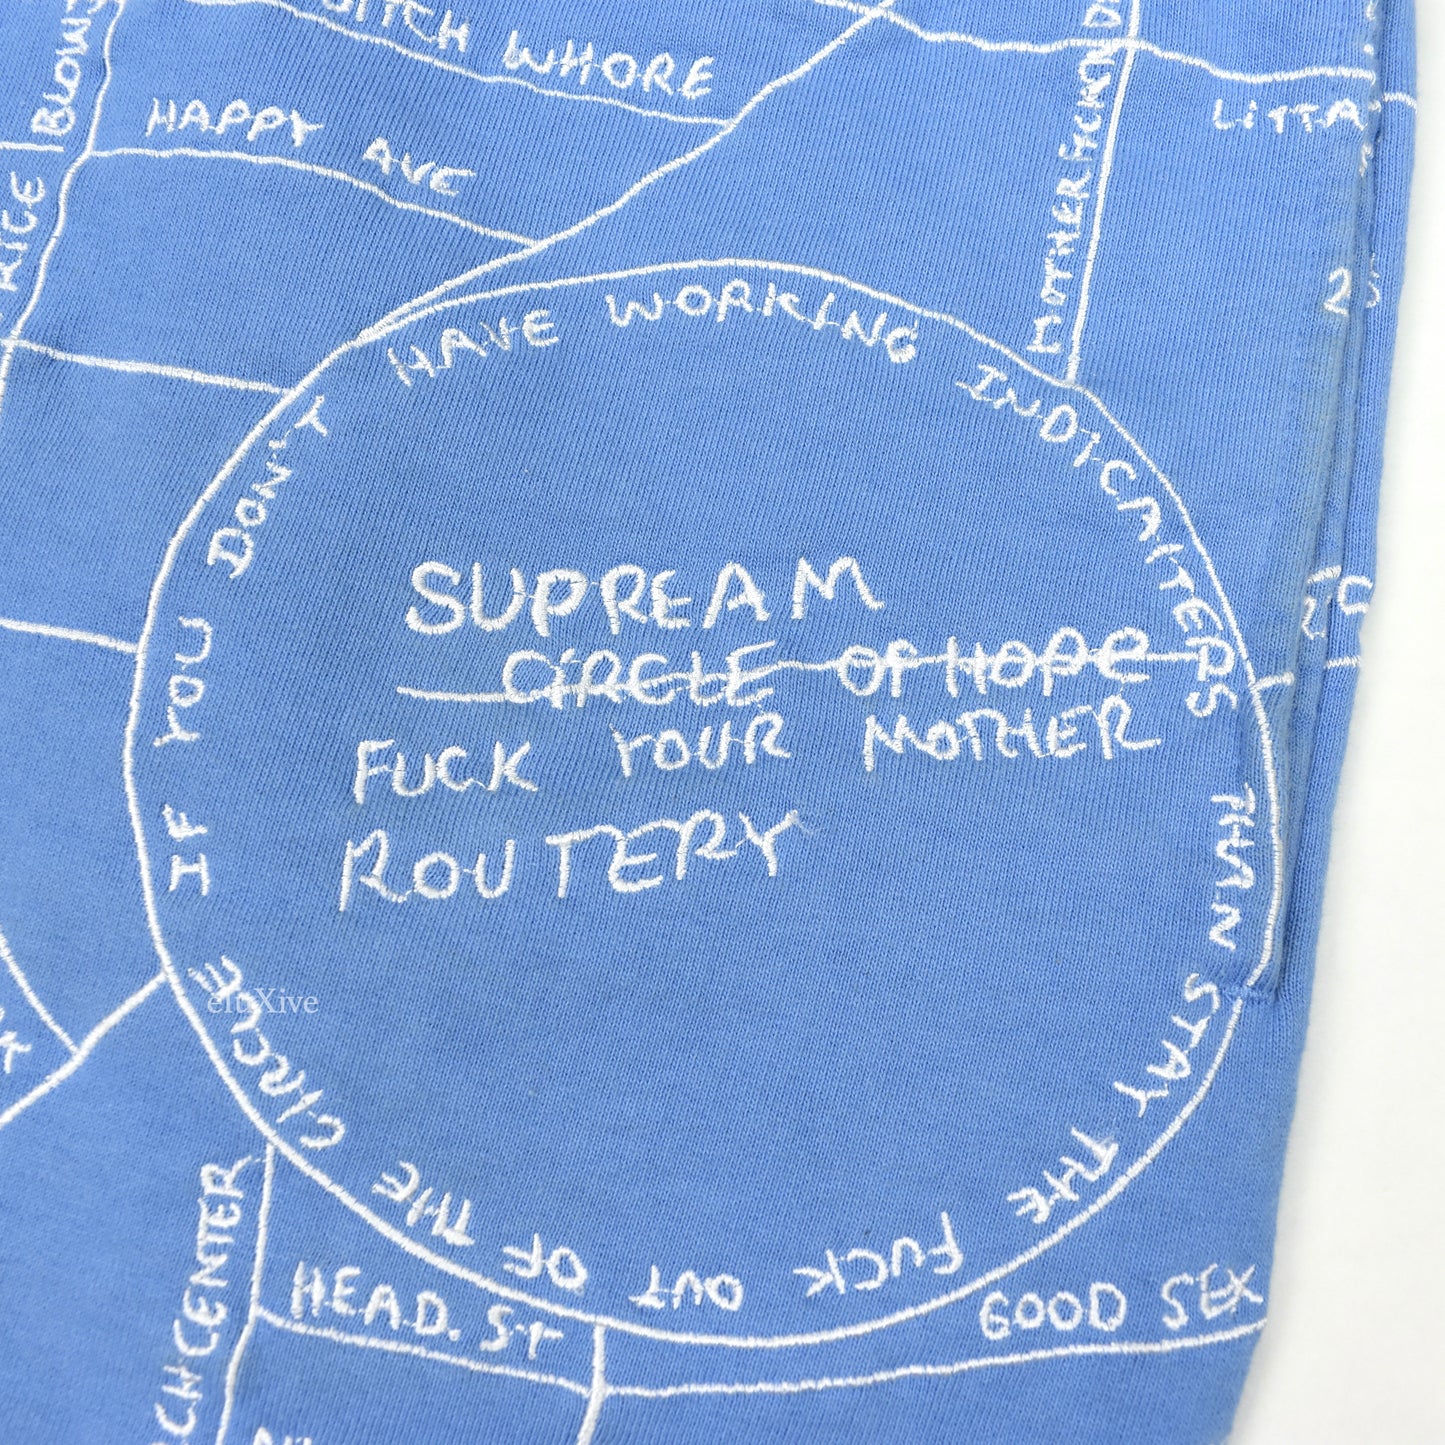 WHORE
HAPPY AVE
LITTA
SUPREAM
CIRCLE OF HOPE
FUCK YOUR MOTHER
ROUTERY
IF YOU DON'T HAVE WORKING INDICAITERS THAN STAY THE FUCK OUT OF THE CIRCLE
eluXive
HEAD. ST
GOOD SEX